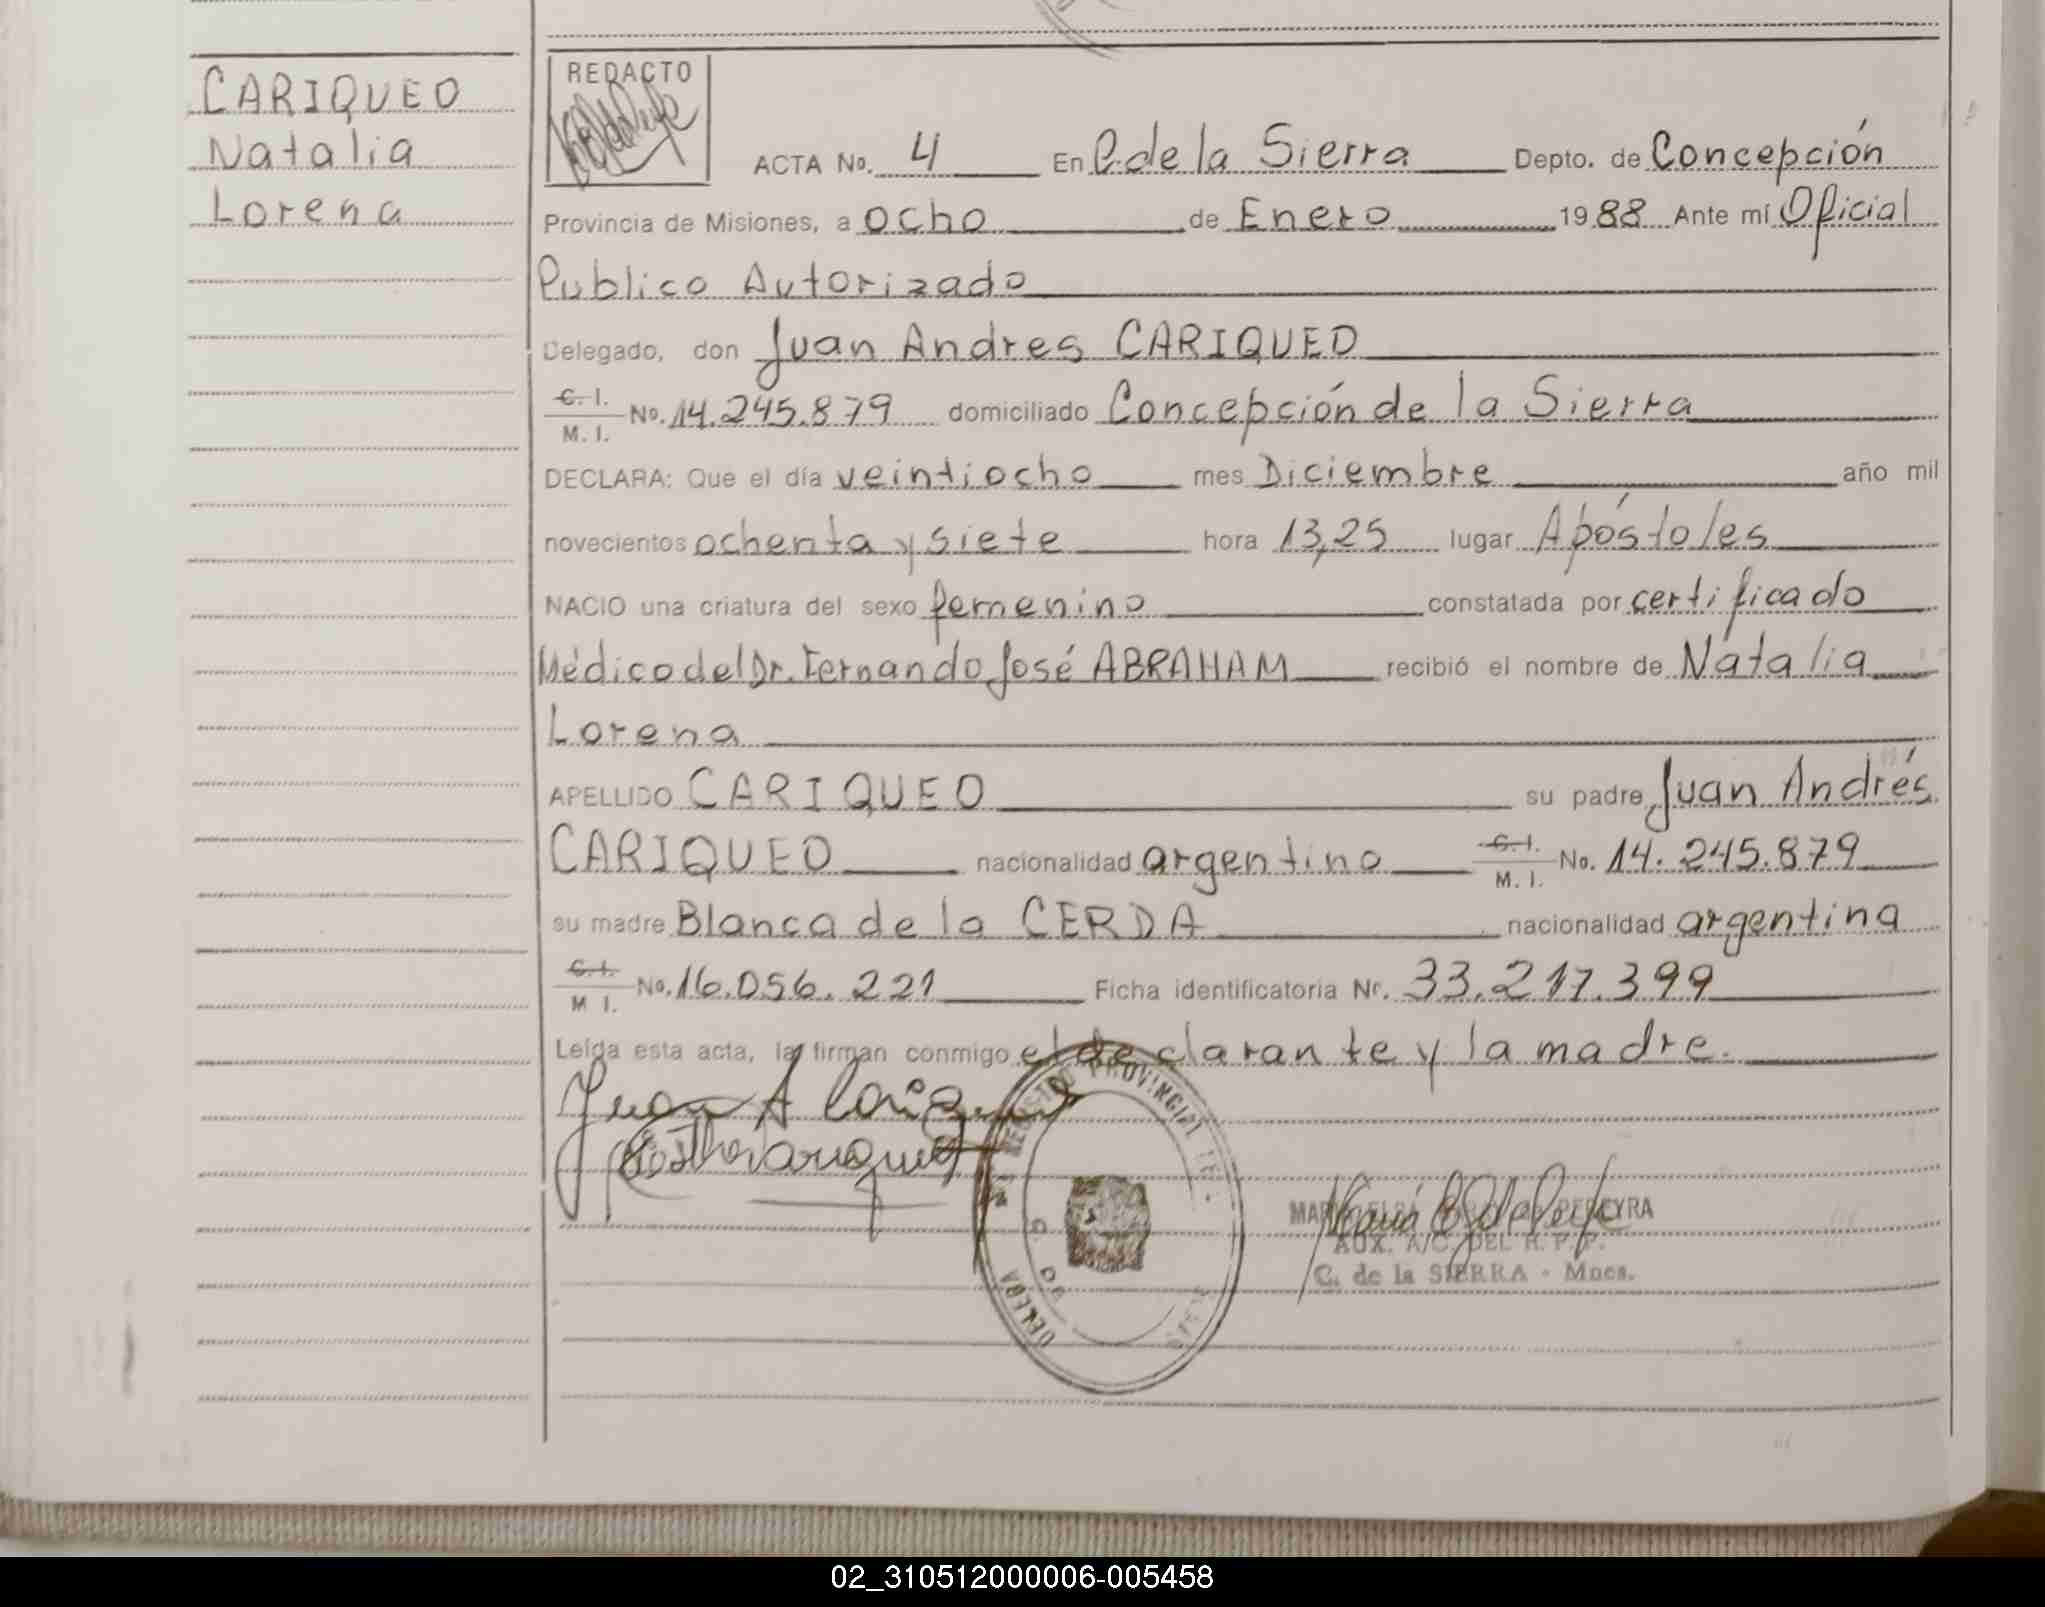 CARIQUEO
Natalia
Lorena
REDACTO
ACTA No. 4 En C. de la Sierra Depto. de Concepción
Provincia de Misiones, a ocho de Enero 1988 Ante mí Oficial
Publico Autorizado
Delegado, don Juan Andres CARIQUEO
C. I. M. I. No. 14.245.879 domiciliado Concepción de la Sierra
DECLARA: Que el día veintiocho mes Diciembre año mil
novecientos ochenta y siete hora 13,25 lugar Apóstoles
NACIO una criatura del sexo femenino constatada por certificado
Médico del Dr. Fernando José ABRAHAM recibió el nombre de Natalia
Lorena
APELLIDO CARIQUEO su padre Juan Andrés
CARIQUEO nacionalidad argentino C. I. M. I. No. 14.245.879
su madre Blanca de la CERDA nacionalidad argentina
C. I. M I. No. 16.056.221 Ficha identificatoria Nr. 33.217.399
Leída esta acta, la firman conmigo el declarante y la madre.
Juan A Cariqueo
REGISTRO PROVINCIAL DE
PEREYRA
AUX. A/C. DEL R. P. P.
C. de la SIERRA - Mnes.
02_310512000006-005458